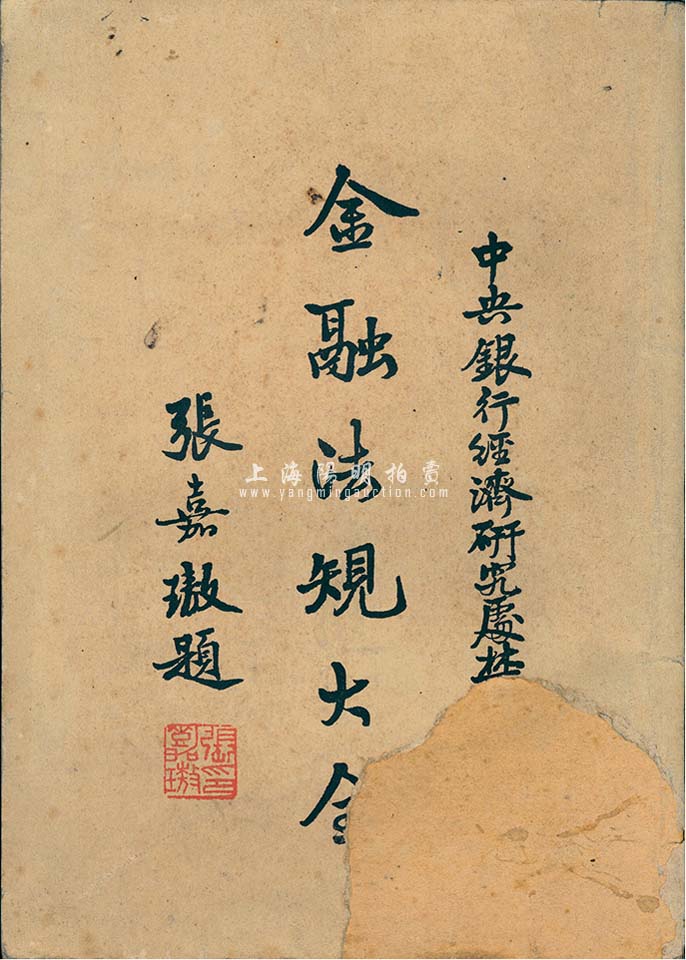 中央銀行經濟研究處
金融法規大全
張嘉璈題
張印嘉璈
上海陽明拍賣
www.yangmingauction.com